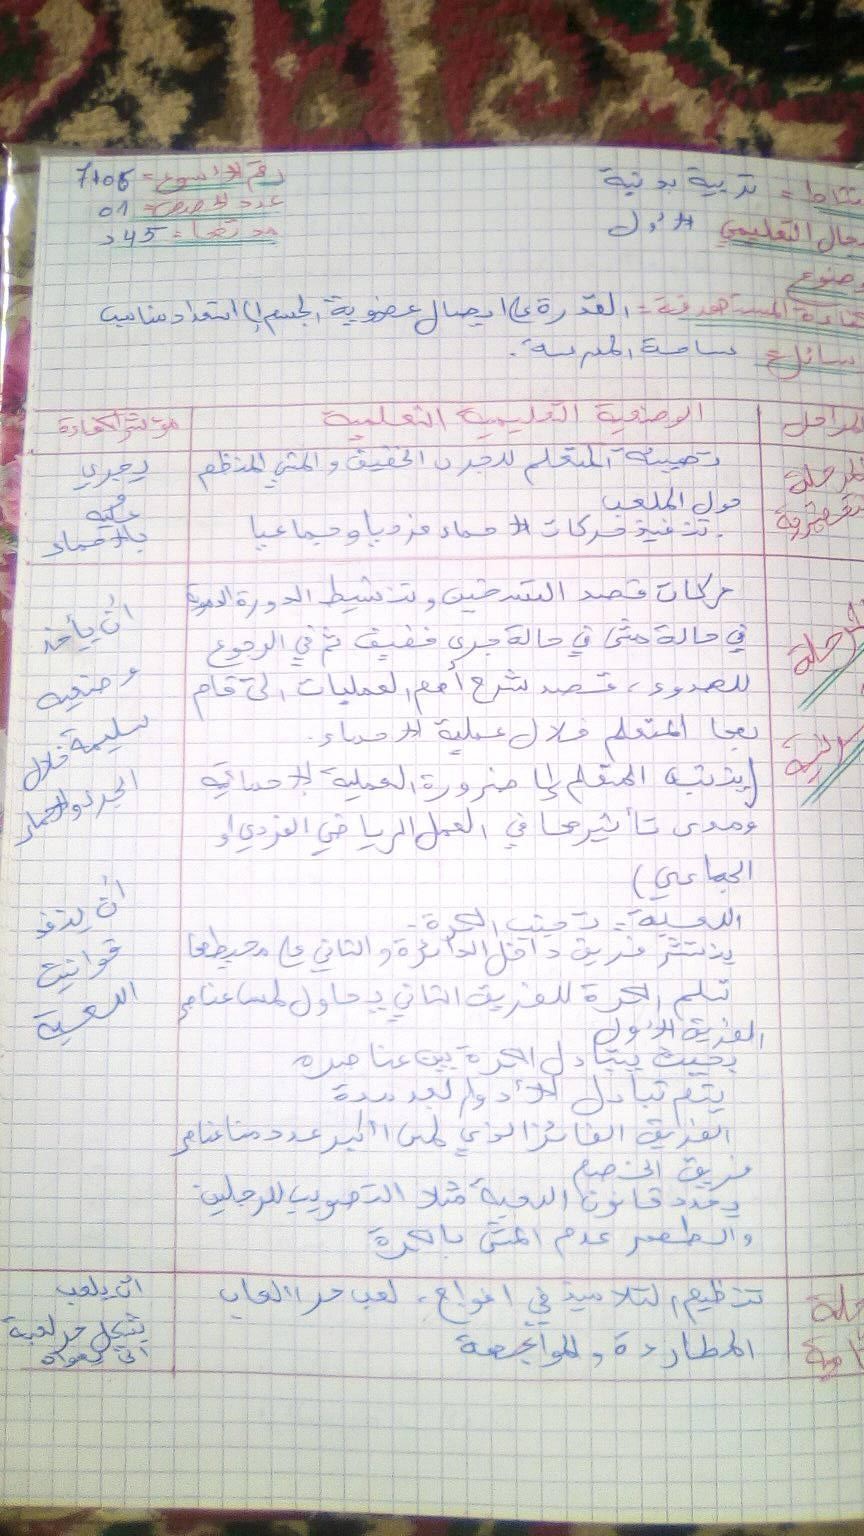 نشاط = تربية بدنية
رقم الأسبوع = 7+06
المجال التعليمي الأول
عدد الحصص = 01
مدتها = 45 د
الموضوع
الكفاءة المستهدفة = القدرة على ايصال عضوية الجسم إلى استعداد مناسب
الوسائل = ساحة المدرسة .
المراحل
الوضعية التعليمية التعلمية
مؤشر الكفاءة
المرحلة
تهيئة المتعلم للجري الخفيف والمشي المنظم
حول الملعب
. تنفيذ حركات الاحماء فرديا وجماعيا
يجري
بالاحماء
المرحلة
حركات قصد التسخين وتنشيط الدورة الدموية
في حالة مشي في حالة جري خفيف ثم في الرجوع
للهدوء ، قصد شرح أهم العمليات التي قام
بها المتعلم خلال عملية الاحماء .
(ينتبه المتعلم إلى ضرورة العملية الاحمائية
ومدى تأثيرها في العمل الرياضي الفردي أو
الجماعي)
اللعبة = تجنب الكرة .
ينتشر فريق داخل الدائرة والثاني على محيطها
تسلم الكرة للفريق الثاني يحاول لمس عناصر
الفريق الأول
بحيث يتبادل الكرة بين عناصره
يتم تبادل الأدوار بعد مدة
الفريق الفائز الذي لمس أكبر عدد من عناصر
فريق الخصم
يحدد قانون اللعبة مثلا التصويب للرجلين
والظهر عدم المشي بالكرة
أن يأخذ
وضعية
سليمة خلال
الجري والاحماء
أن ينفذ
قوانين
اللعبة
تنظيم التلاميذ في افواج ، لعب حر العاب
المطاردة والمواجهة
ان يلعب
بشكل حر لعبة